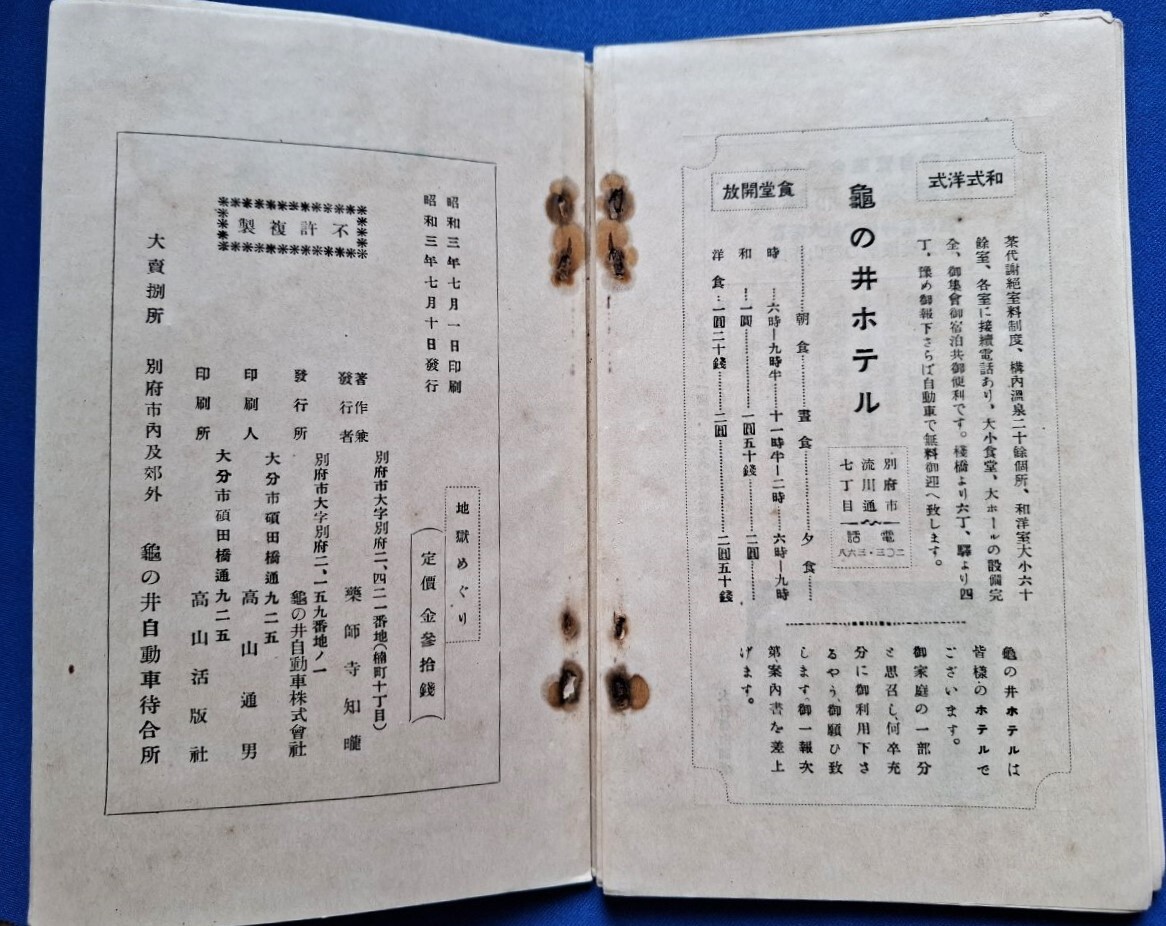 和式洋式
茶代謝絕室料制度、構內溫泉二十餘個所、和洋室大小六十
餘室、各室に接續電話あり、大小食堂、大ホールの設備完
全、御集會御宿泊共御便利です。棧橋より六丁、驛より四
丁、豫め御報下さらば自動車で無料御迎へ致します。
龜の井ホテル
別府市
流川通
七丁目
電話
二〇三・三六八
食堂開放
朝食 晝食 夕食
時 六時―九時半 十一時半―二時 六時―九時
和 一圓 一圓五十錢 二圓
洋食 一圓二十錢 二圓 二圓五十錢
龜の井ホテルは
皆樣のホテルで
ございます。
御家庭の一部分
と思召し、何卒充
分に御利用下さ
るやう御願ひ致
します、御一報次
第案內書を差上
げます。
昭和三年七月一日印刷
昭和三年七月十日發行
不許複製
地獄めぐり
定價金參拾錢
別府市大字別府二、四二一番地(楠町十丁目)
著作兼
發行者 藥師寺知曨
別府市大字別府二、一五九番地ノ一
發行所 龜の井自動車株式會社
大分市碩田橋通九二五
印刷人 高山通男
大分市碩田橋通九二五
印刷所 高山活版社
大賣捌所 別府市內及郊外 龜の井自動車待合所